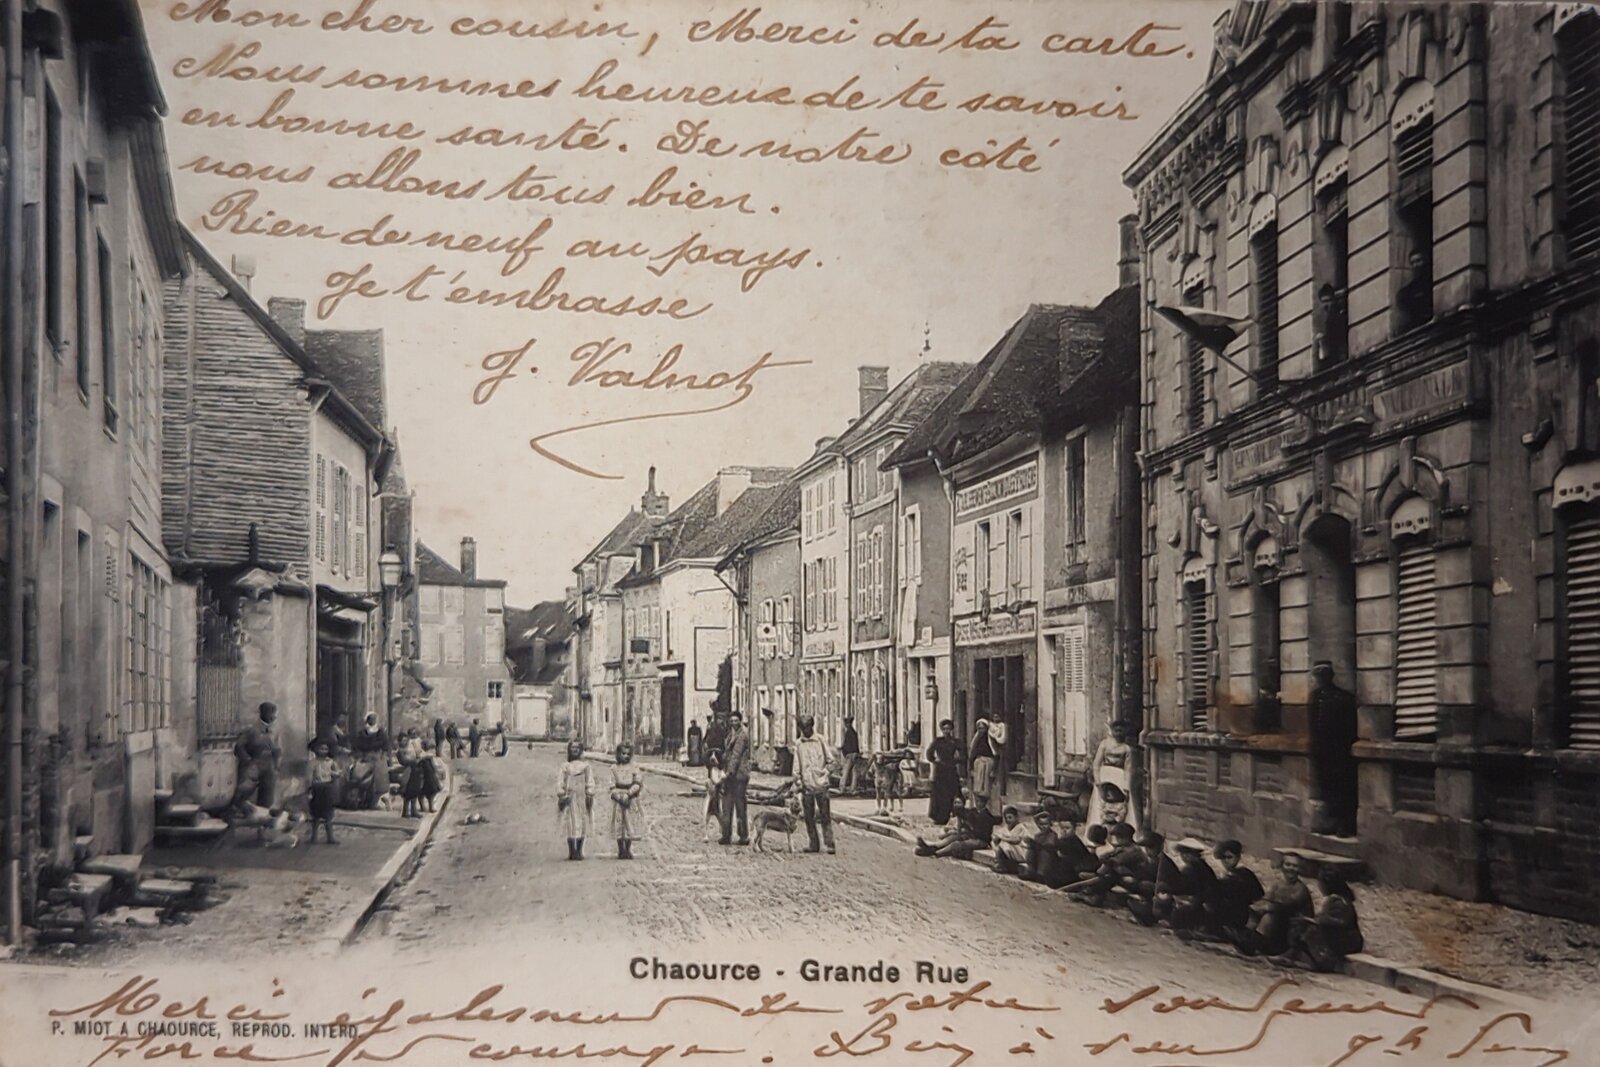 Mon cher cousin, Merci de ta carte.
Nous sommes heureux de te savoir
en bonne santé. De notre côté
nous allons tous bien.
Rien de neuf au pays.
Je t'embrasse
J. Valnot
GENDARMERIE NATIONALE
Chaource - Grande Rue
Merci également de votre souvenir
P. MIOT A CHAOURCE, REPROD. INTERD.
Force et courage. Bien à vous